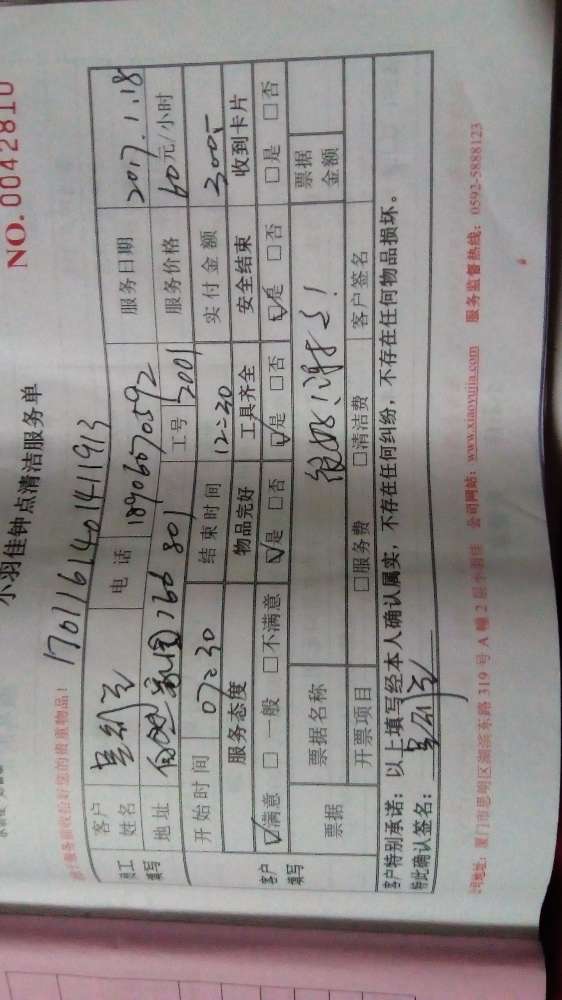 NO.0042810
小羽佳钟点清洁服务单
170116140141191 3
请于服务前收拾好您的贵重物品！
员工填写 客户姓名 电话 18906070592 服务日期 2017.1.18
地址 766 801 工号 2001 服务价格 60元/小时
开始时间 07:30 结束时间 12:30 实付金额 300元
客户填写 服务态度 物品完好 工具齐全 安全结束 收到卡片
☑满意 □一般 □不满意 ☑是 □否 ☑是 □否 ☑是 □否 □是 □否
票据 票据名称 很好！谢谢！ 票据金额
开票项目 □服务费 □清洁费 客户签名
客户特别承诺：以上填写经本人确认属实，不存在任何纠纷，不存在任何物品损坏。
特此确认签名：
公司地址：厦门市思明区湖滨东路319号A幢2层小羽佳 公司网站：www.xiaoyujia.com 服务监督热线：0592-5888123